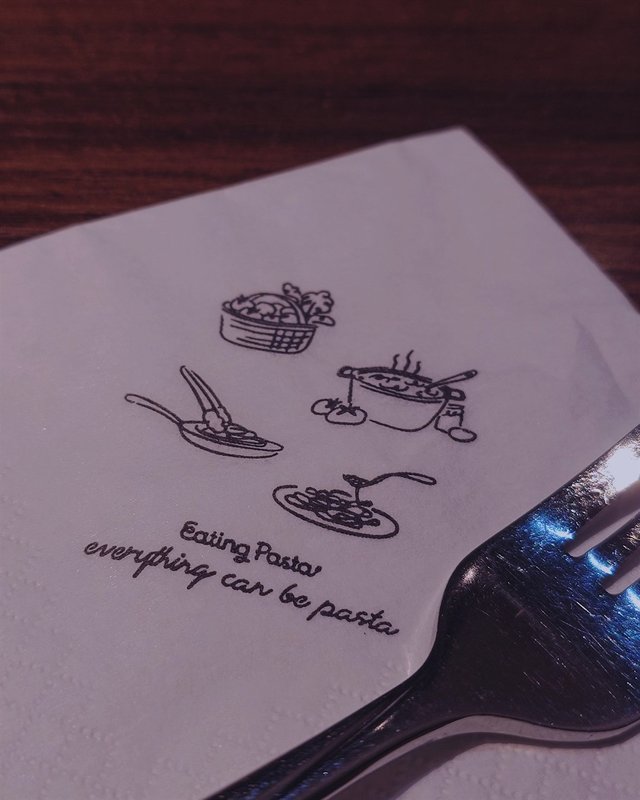 Eating Pasta
everything can be pasta